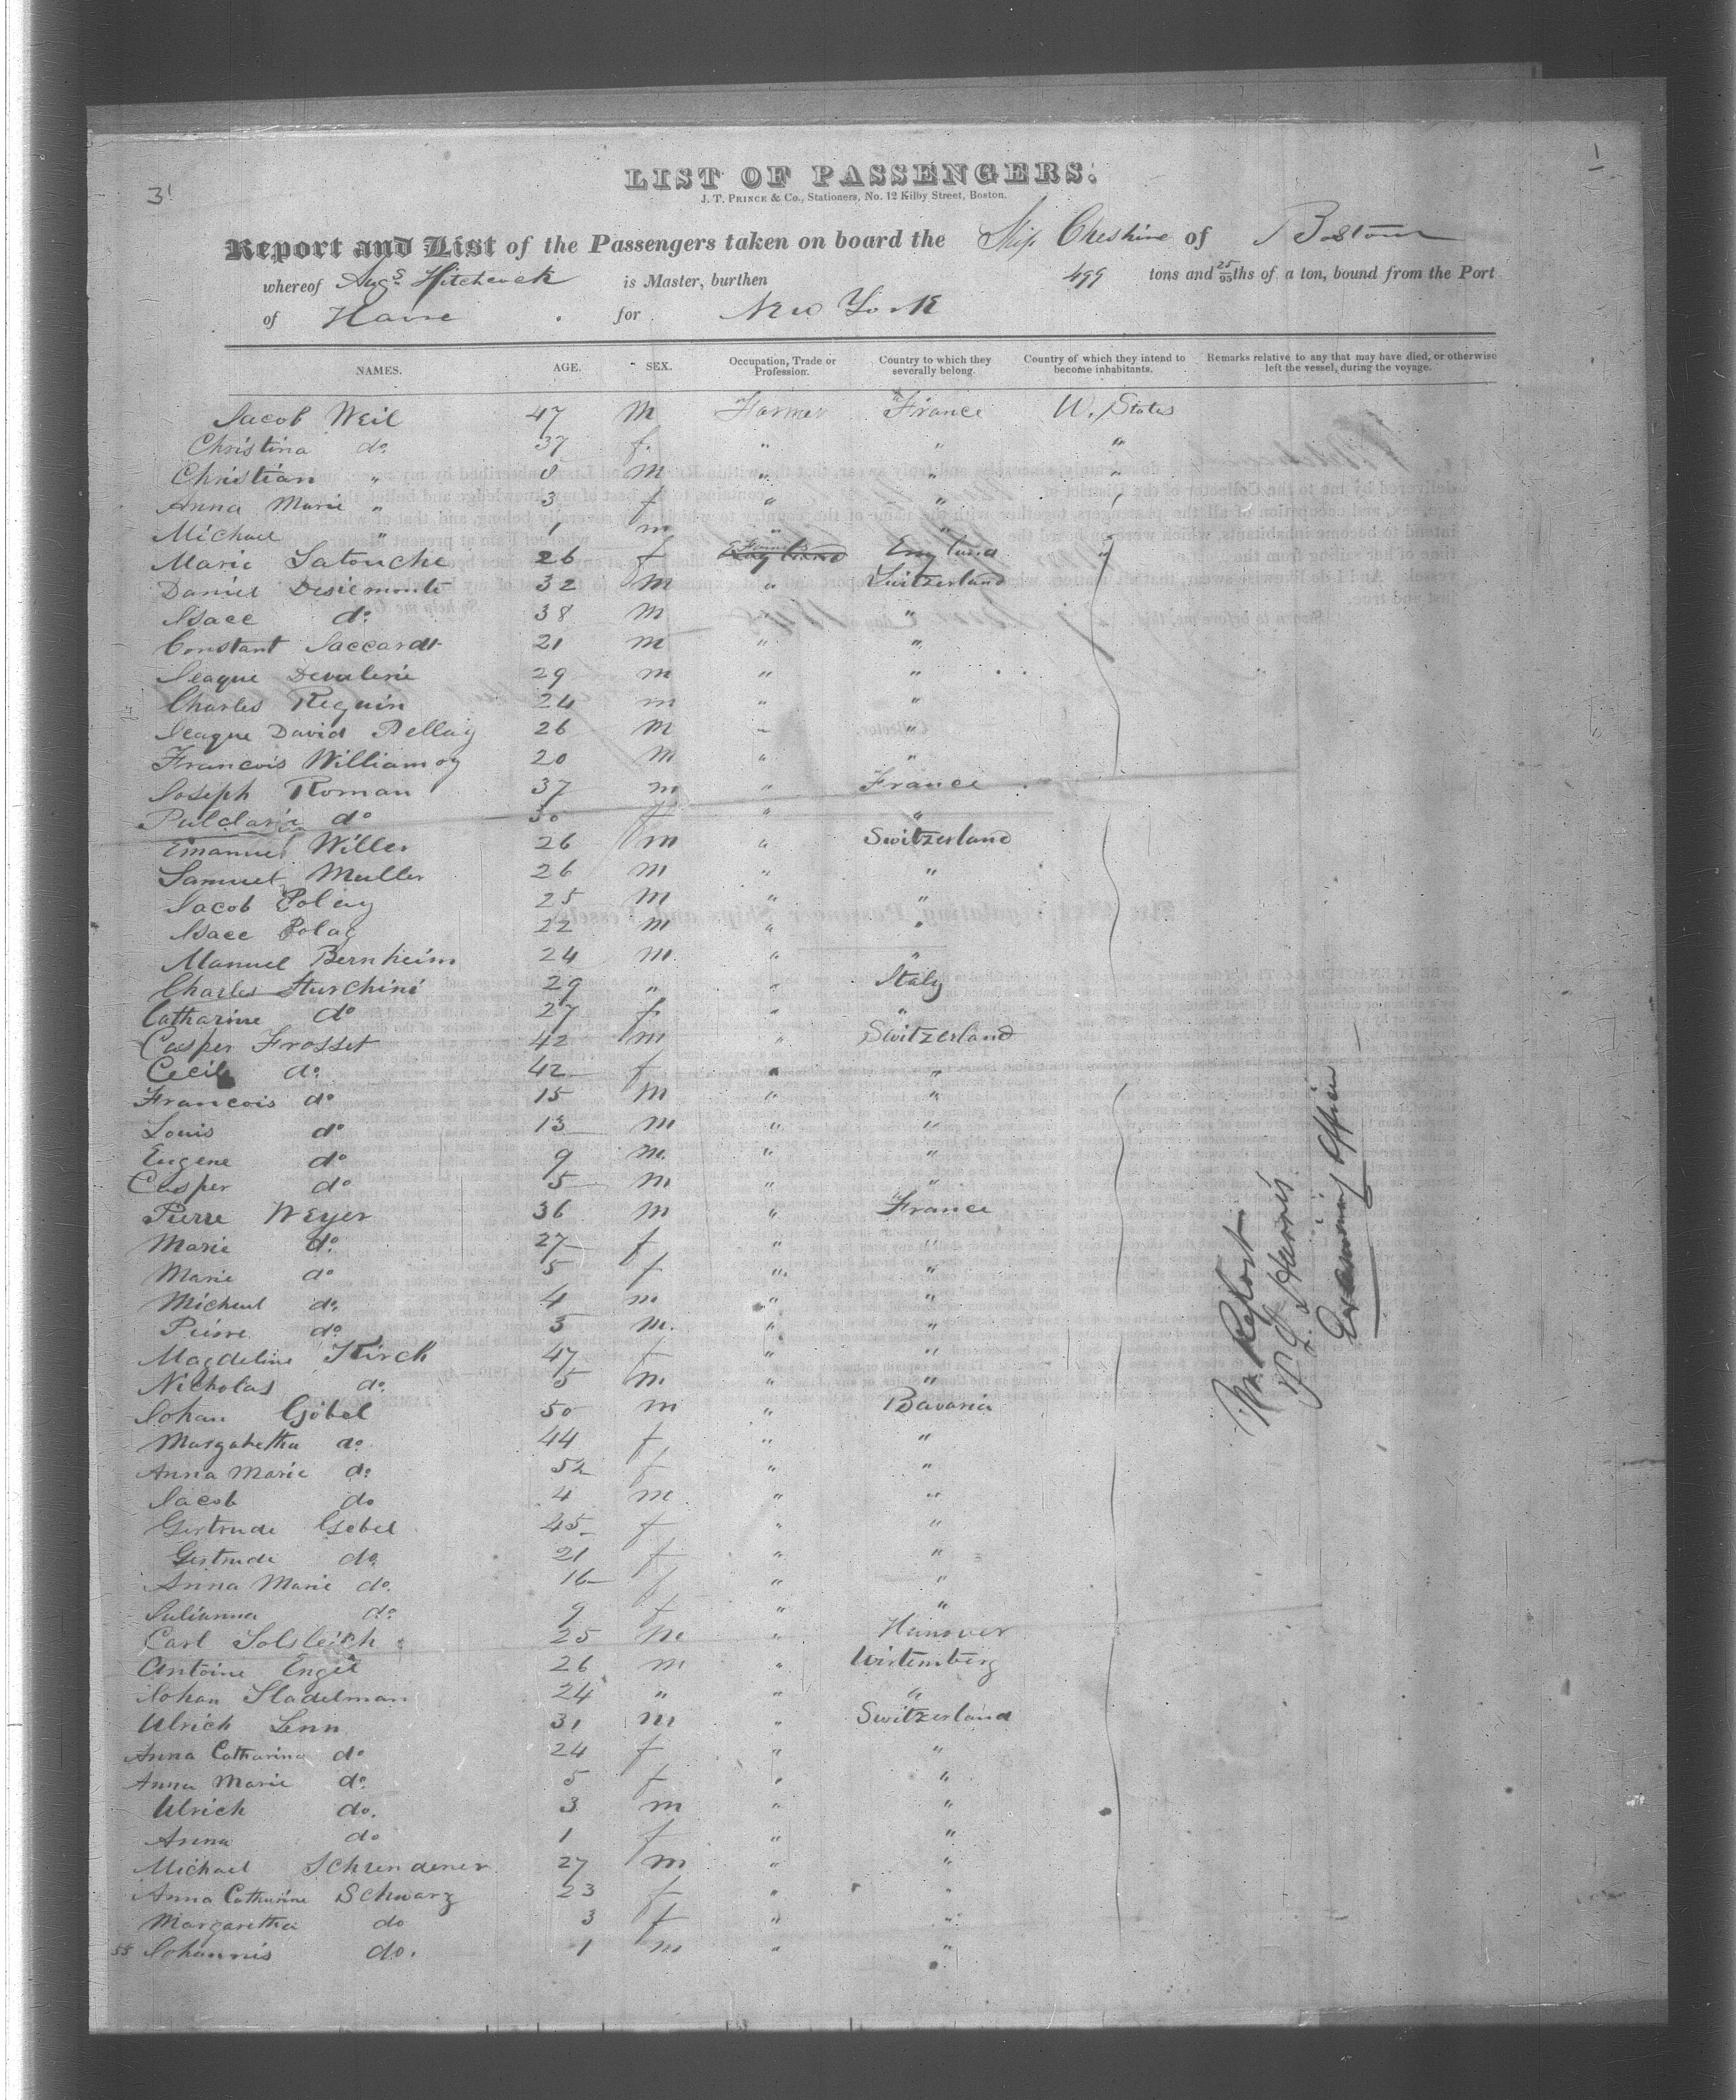 3'
1
LIST OF PASSENGERS.
J. T. PRINCE & Co., Stationers, No. 12 Kilby Street, Boston.
Report and List of the Passengers taken on board the Ship Cheshire of Boston
whereof Augs. Hitchcock is Master, burthen 499 tons and 25/95ths of a ton, bound from the Port
of Havre for New York
NAMES. AGE. SEX. Occupation, Trade or Profession. Country to which they severally belong. Country of which they intend to become inhabitants. Remarks relative to any that may have died, or otherwise left the vessel, during the voyage.
Jacob Weil 47 M Farmer France U. States
Christina do 37 f. " " "
Christian " 8 M " " "
Anna Marie " 3 f " "
Michael " 1 m " "
Marie Latouche 26 f England England
Daniel 32 M " Switzerland
Isaac do 38 M " "
Constant Jaccardt 21 m " "
29 m " "
Charles Reguin 24 m " "
David 26 M " "
Francois 20 M " "
Joseph Roman 37 m " France
do 30 f " "
Emanuel Willer 26 m " Switzerland
Samuel Muller 26 m " "
Jacob 25 M " "
Isaac Polag 22 M " "
Manuel Bernheim 24 m. " "
Charles Sturchini 29 " " Italy
Catharine do 27 f. " "
Casper Frosset 42 m " Switzerland
Cecile do 42 f " "
Francois do 15 M " "
Louis do 13 m " "
Eugene do 9 m. " "
Casper do 5 m " "
Pierre Weyer 36 m " France
Marie do 27 f " "
Marie do 5 f " "
Micheal do 4 m " "
Pierre do 3 m. " "
Magdeline Kirch 47 f " "
Nicholas do 5 m " "
Johan Göbel 50 m " Bavaria
Margaretha do 44 f " "
Anna Marie do 52 f " "
Jacob do 4 m " "
Gertrude Gobel 45 f " "
Gertrude do 21 f " "
Anna Marie do. 16 f " "
Julianna do 9 f " "
Carl Solsleich 25 m " Hanover
Antoine Engel 26 m " Wirtemberg
Johan Stadelman 24 " " "
Ulrich Senn 31 m " Switzerland
Anna Catharina do 24 f " "
Anna Marie do. 5 f " "
Ulrich do. 3 m " "
Anna do 1 f " "
Michael Schrendener 27 m " "
Anna Catharine Schwarz 23 f " "
Margaretha do 3 f " "
55 Johannis do. 1 m " "
Harris
Examining Officer